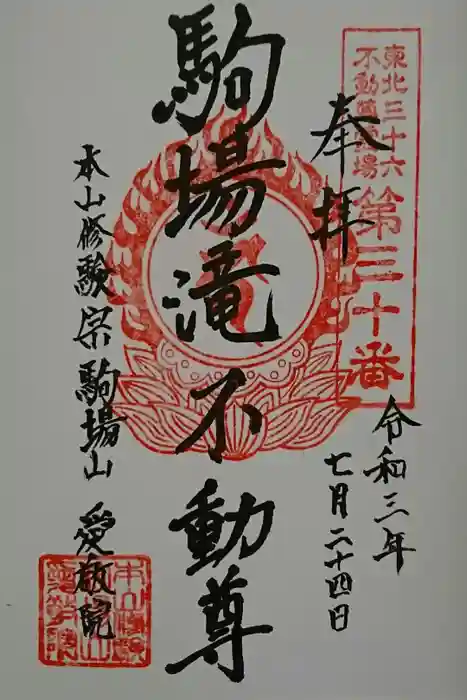 東北三十六
不動尊霊場
第三十番
奉拝
令和三年
七月二十四日
駒場滝不動尊
本山修験宗 駒場山 愛敬院